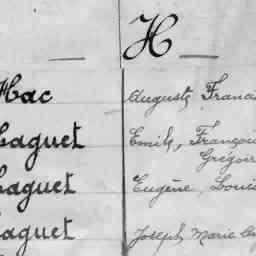 H
Hac Auguste, Francis
Haguet Emile, François
Grégoire
Haguet Eugène, Louis
Haguet Joseph Marie